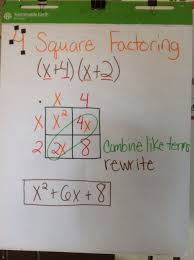 4 Square Factoring
(x+4)(x+2)
x 4
x x² 4x
2 2x 8
Combine like terms
rewrite
x²+6x+8